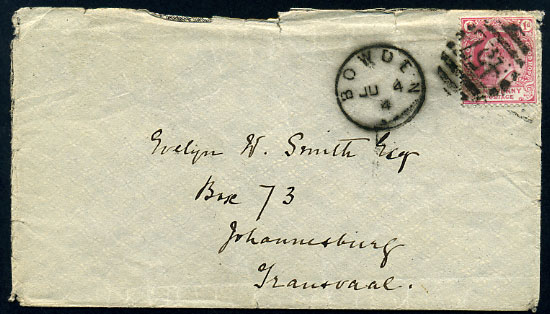 BOWDEN
JU 4
4
Evelyn W. Smith Esq
Box 73
Johannesburg
Transvaal.